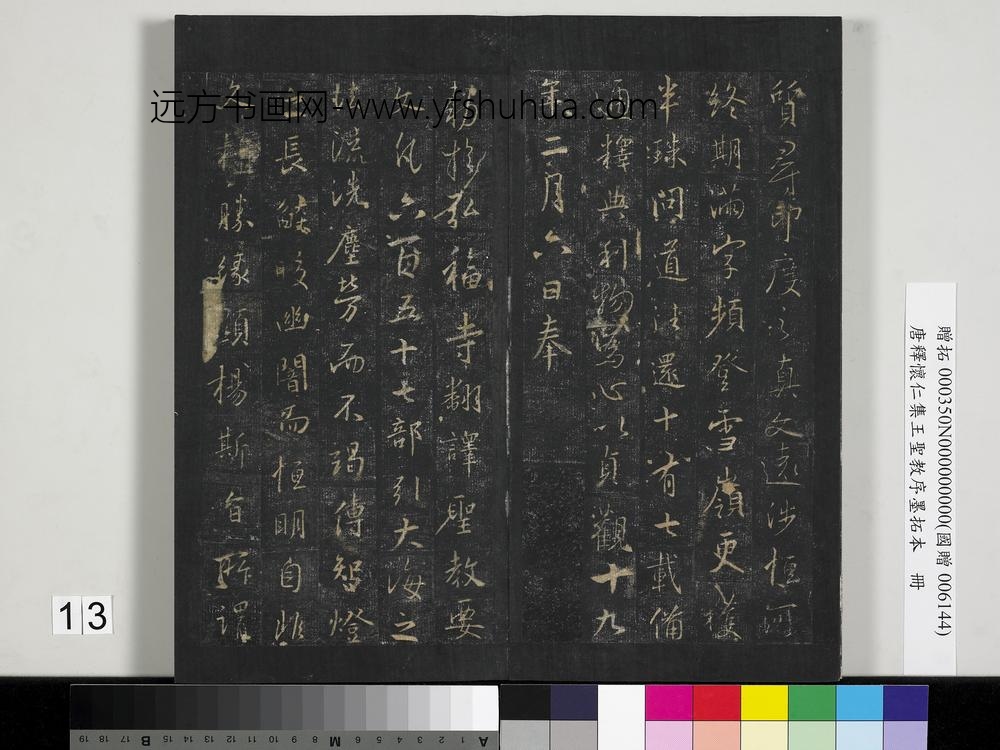 質尋印度之真文遠涉恒河
終期滿字頻登雪嶺更獲
半珠問道法還十有七載備
通釋典利物為心以貞觀十九
年二月六日奉
勑於弘福寺翻譯聖教要
文凡六百五十七部引大海之
法流洗塵勞而不竭傳智燈
之長焰皎幽闇而恒明自非
久植勝緣何以顯揚斯旨所謂
远方书画网-www.yfshuhua.com
贈拓 000350N000000000(國贈 006144)
唐釋懷仁集王聖教序墨拓本 冊
13
19 18 17 16 B 15 14 13 12 11 10 9 8 M 7 6 5 4 3 2 1 A